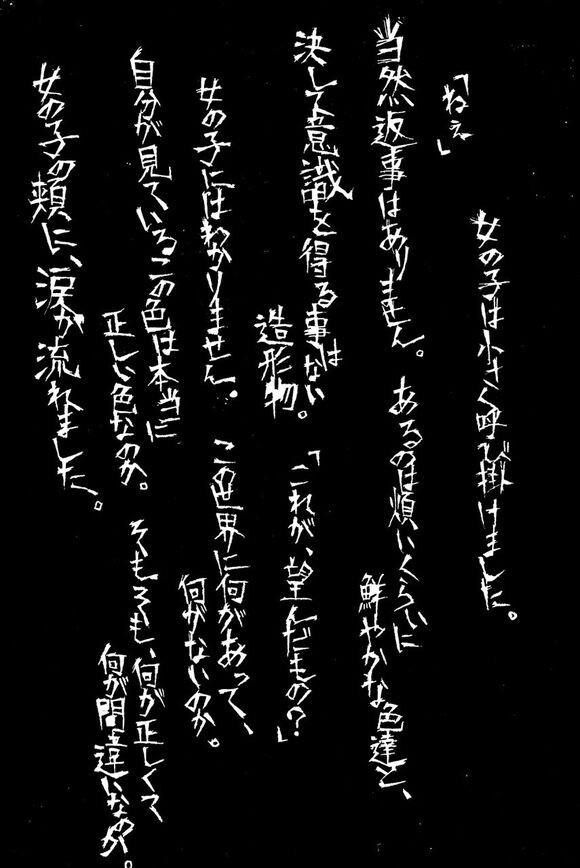 女の子は小さく呼び掛けました。
「ねぇ」
当然返事はありません。
あるのは煩いくらいに
鮮やかな色達と、
決して意識を得る事はない
造形物。
「これが、望んだもの?」
女の子にはわかりません。
この世界に何があって、
何がないのか。
自分が見ているこの色は本当に
正しい色なのか。
そもそも、何が正しくて
何が間違いなのか。
女の子の頬に、涙が流れました。